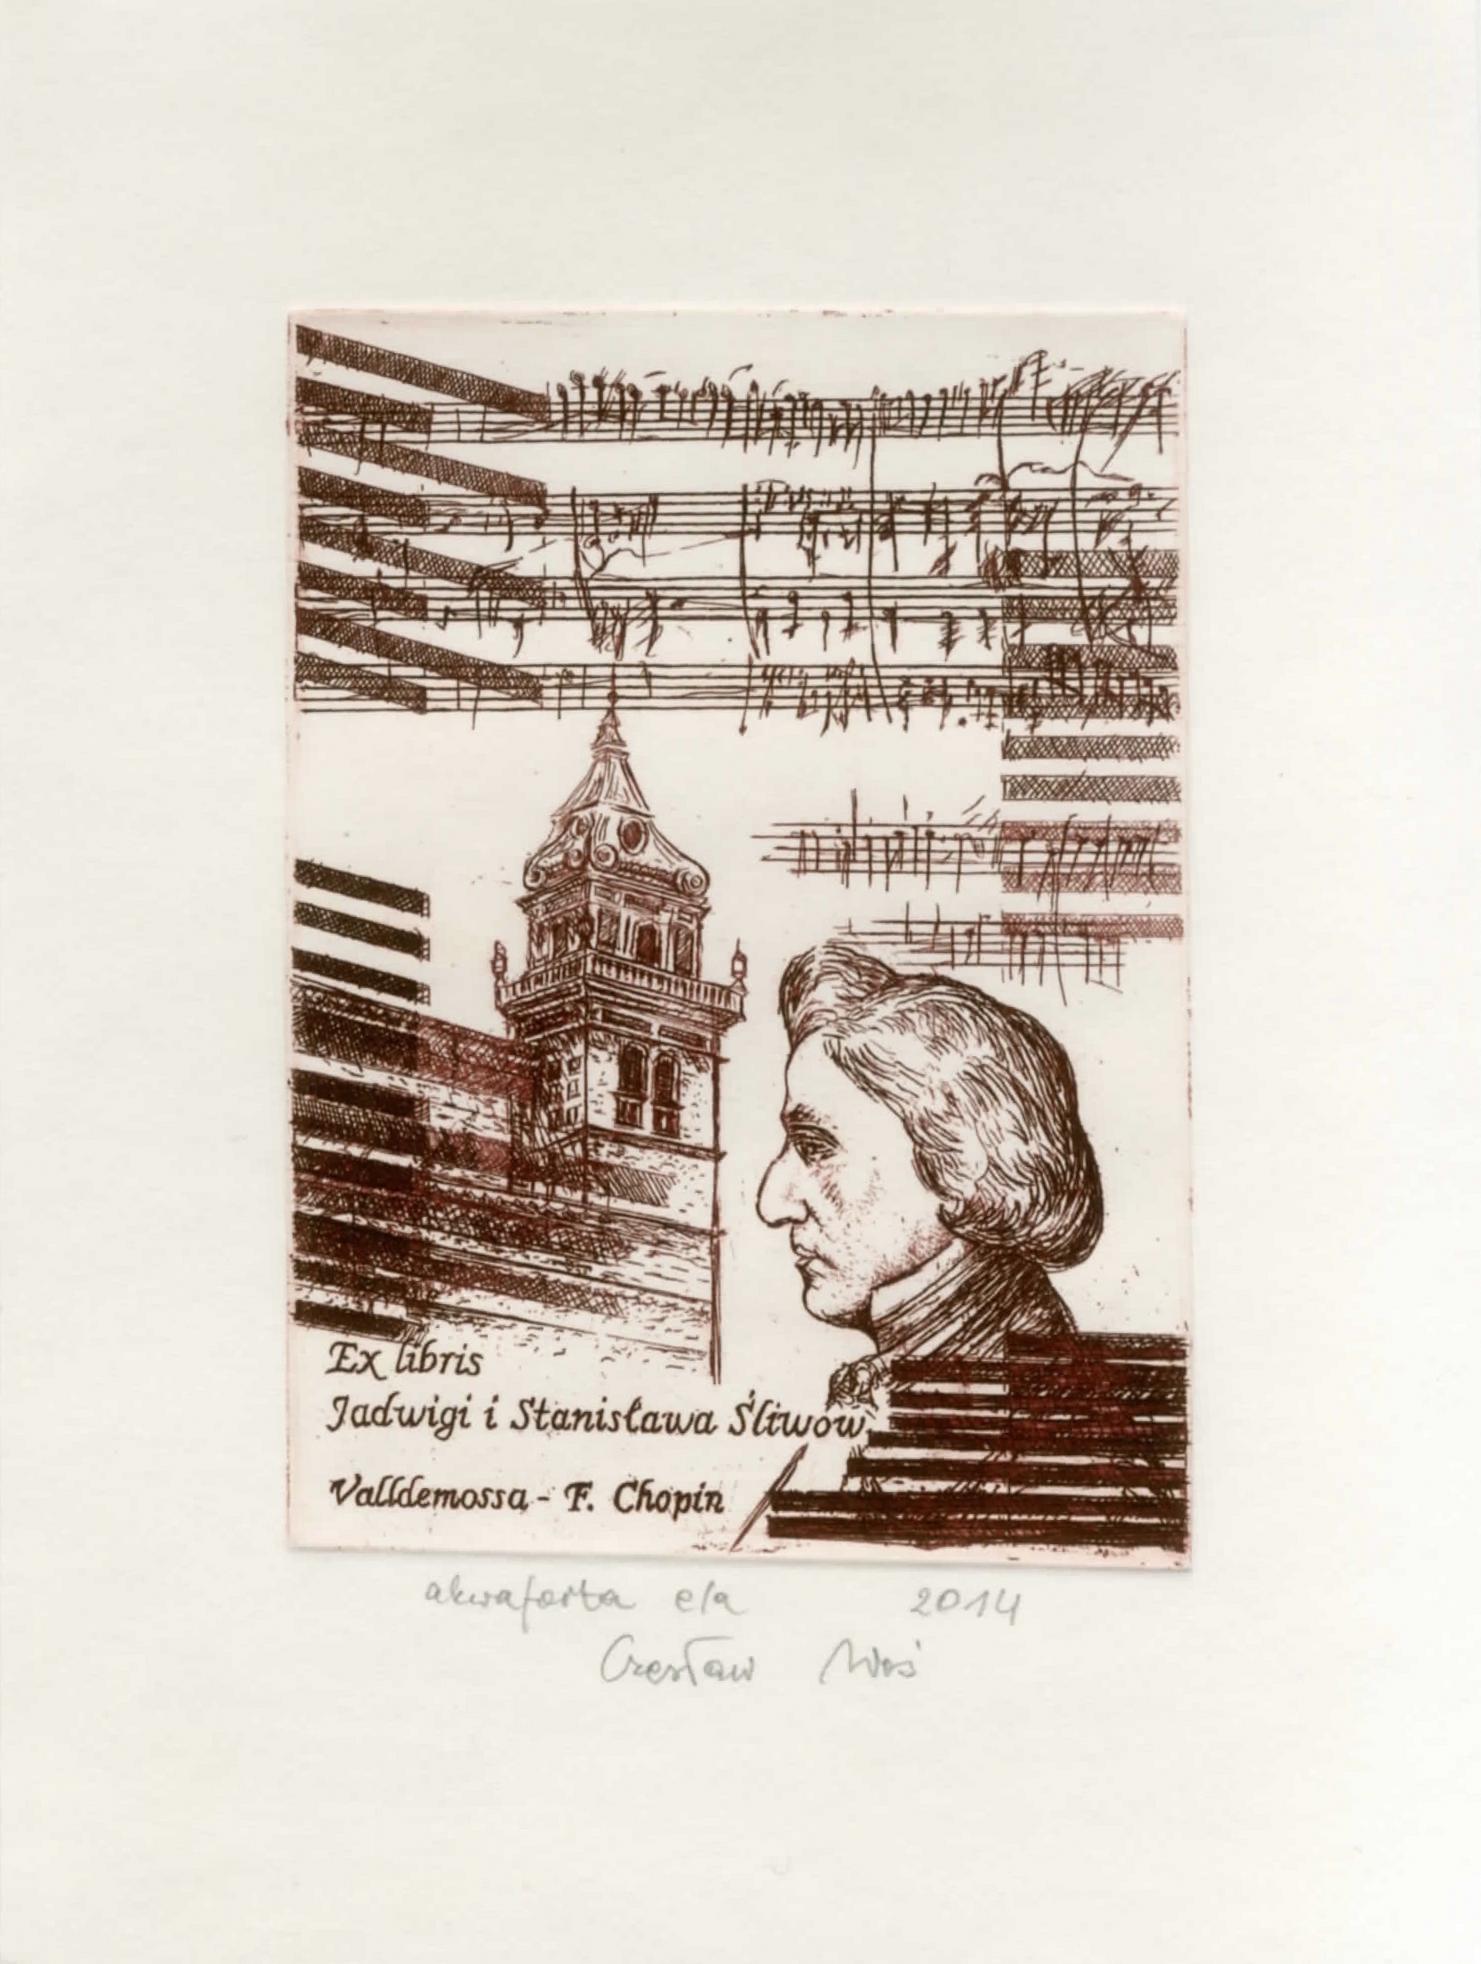 Ex libris
Jadwigi i Stanisława Śliwów
Valldemossa - F. Chopin
akwaforta e/a 2014
Czesław Woś